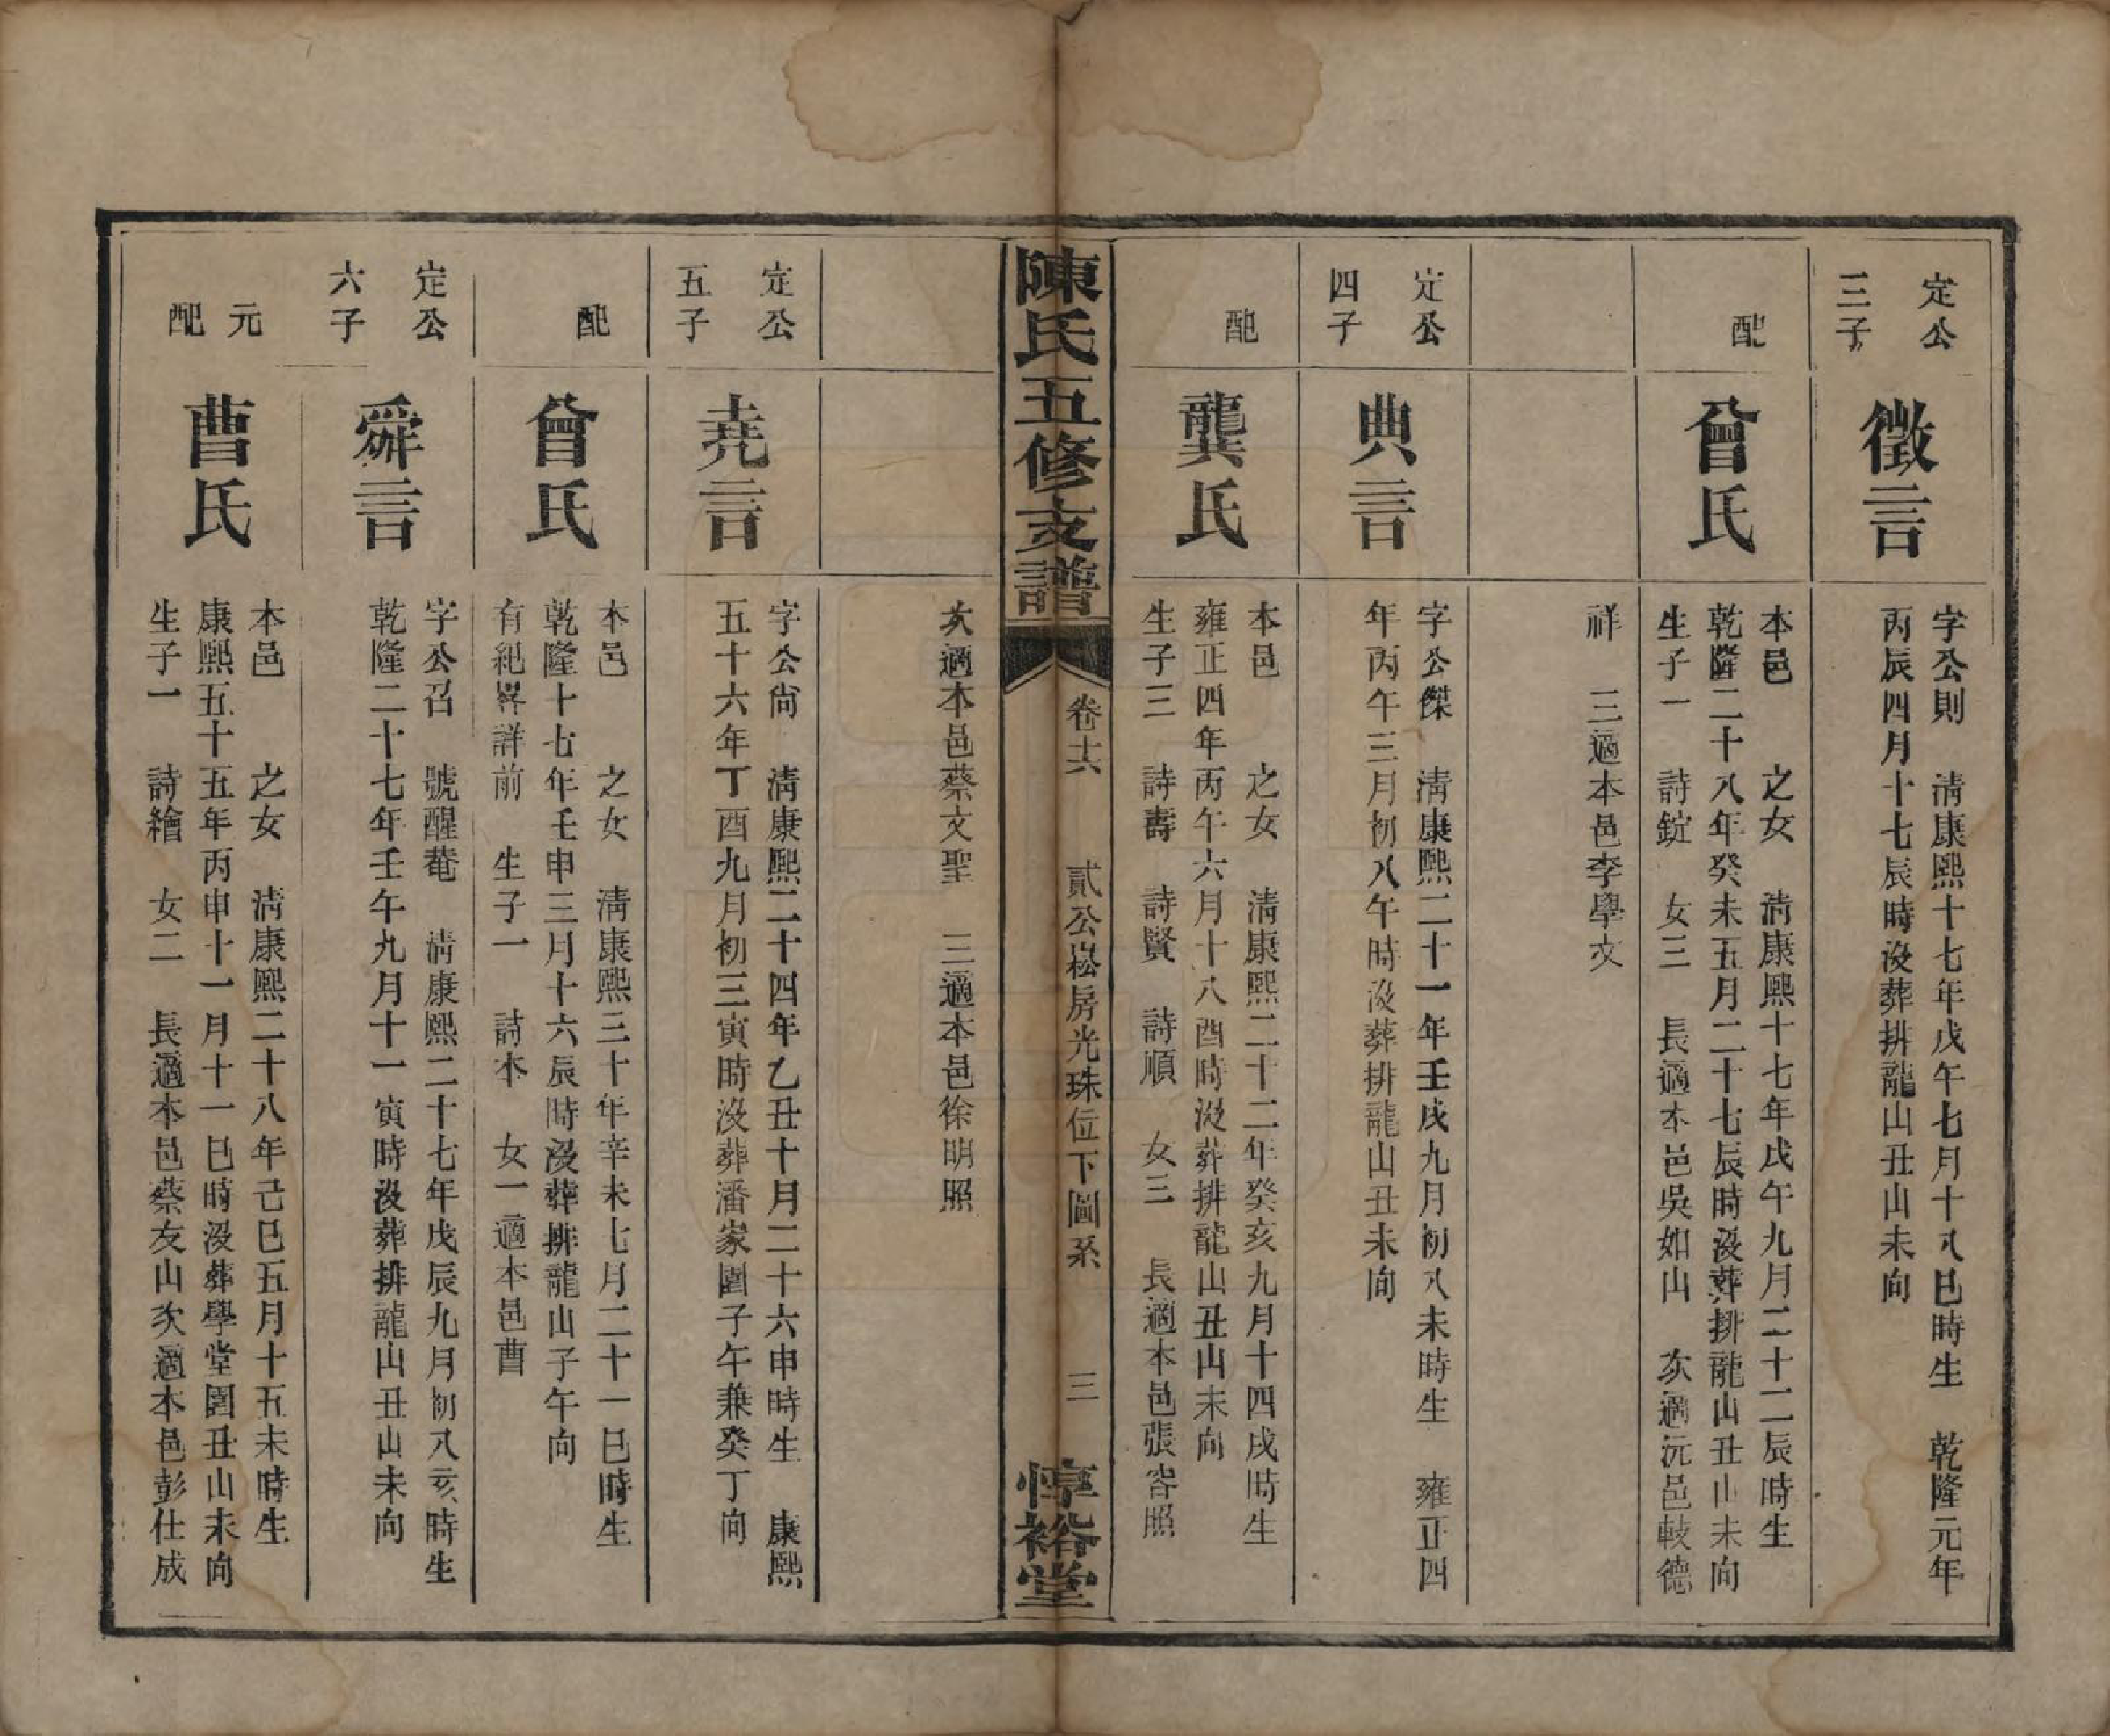 定公
三子
徵言
字公則　清康熙十七年戊午七月十八巳時生　乾隆元年
丙辰四月十七辰時沒葬排龍山丑山未向
配
曾氏
本邑　　之女　清康熙十七年戊午九月二十二辰時生
乾隆二十八年癸未五月二十七辰時沒葬排龍山丑山未向
生子一　詩錠　女三　長適本邑吳如山　次適沅邑䡋德
祥　三適本邑李學文
定公
四子
典言
字公傑　清康熙二十一年壬戌九月初八未時生　雍正四
年丙午三月初八午時沒葬排龍山丑未向
配
龔氏
本邑　　之女　清康熙二十二年癸亥九月十四戌時生
雍正四年丙午六月十八酉時沒葬排龍山丑山未向
生子三　詩壽　詩賢　詩順　女三　長適本邑張容照
陳氏五修支譜
卷十六　貳公崧房光珠位下圖系　三
惇裕堂
次適本邑蔡文聖　三適本邑徐明照
定公
五子
堯言
字公尙　清康熙二十四年乙丑十月二十六申時生　康熙
五十六年丁酉九月初三寅時沒葬潘家園子午兼癸丁向
配
曾氏
本邑　　之女　清康熙三十年辛未七月二十一巳時生
乾隆十七年壬申三月十六辰時沒葬排龍山子午向
有紀畧詳前　生子一　詩本　女一適本邑曹
定公
六子
舜言
字公召　號醒菴　清康熙二十七年戊辰九月初八亥時生
乾隆二十七年壬午九月十一寅時沒葬排龍山丑山未向
元
配
曹氏
本邑　　之女　清康熙二十八年己巳五月十五未時生
康熙五十五年丙申十一月十一巳時沒葬學堂園丑山未向
生子一　詩繪　女二　長適本邑蔡友山次適本邑彭仕成